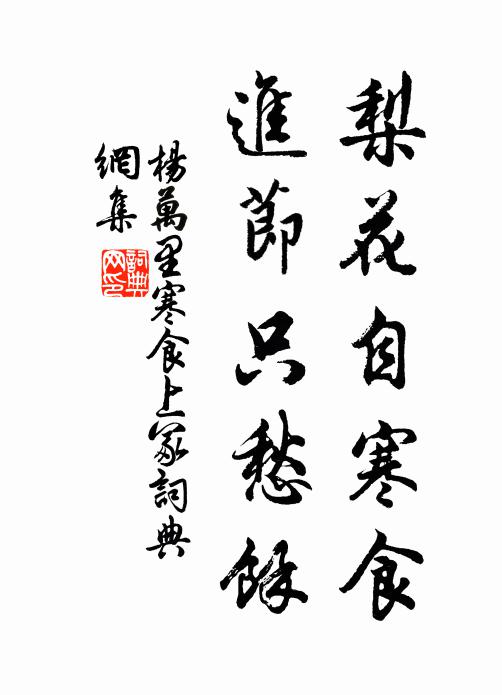 梨花自寒食
進節只愁餘
楊萬里寒食上冢詞典
網集
詞典
网印